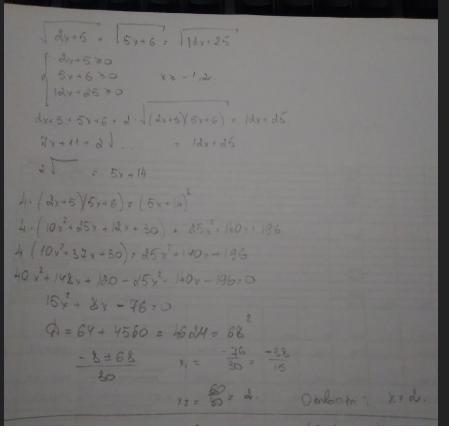 √2x+5 + √5x+6 = √12x+25
{ 2x+5≥0
5x+6≥0 x≥ -1,2
12x+25≥0
2x+5+5x+6+2·√(2x+5)(5x+6) = 12x+25
7x+11+2√... = 12x+25
2√ = 5x+14
4·(2x+5)(5x+6) = (5x+14)²
4·(10x²+25x+12x+30) = 25x²+140x+196
4(10x²+37x+30) = 25x²+140x+196
40x²+148x+120-25x²-140x-196=0
15x²+8x-76=0
D=64+4560=4624=68²
-8±68/30 x₁= -76/30 = -38/15
x₂= 60/30 = 2. Ответ: x=2.